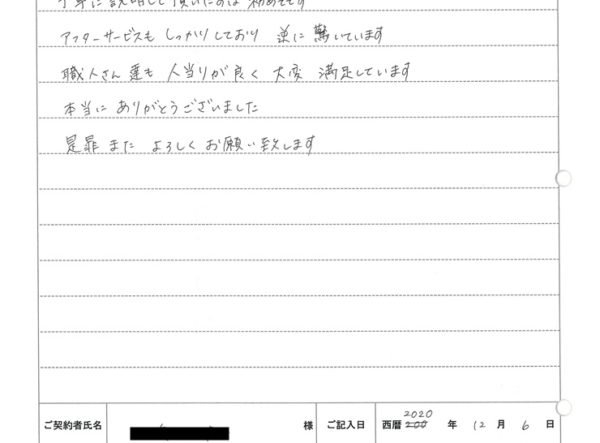 丁寧に説明して頂いたのは 初めてです
アフターサービスも しっかりしており 逆に 驚いています
職人さん達も 人当りが良く 大変 満足しています
本当に ありがとうございました
是非 また よろしく お願い致します
ご契約者氏名 様 ご記入日 西暦 200 2020 年 12 月 6 日